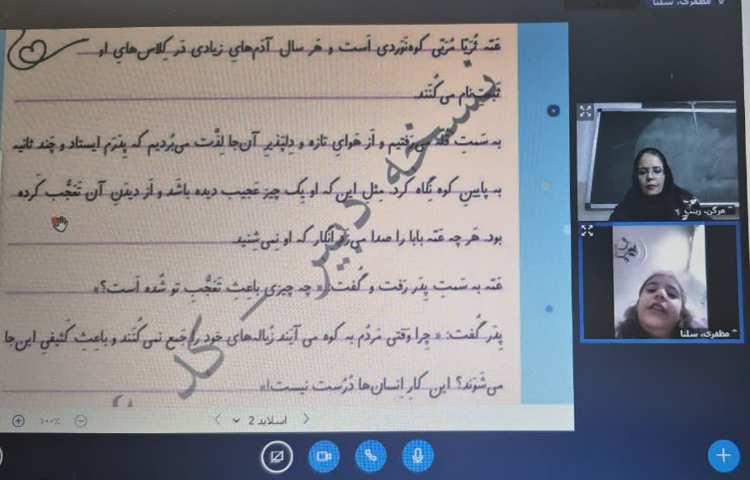 مظفری، سلنا
عَمّه ثُرَیّا مُرَبّی کوه‌نَوَردی اَست و هَر سال آدَم‌هایِ زیادی دَر کِلاس‌هایِ او
ثَبت‌نام می‌کُنَند.
به سَمتِ قُلّه می‌رَفتیم و اَز هَوایِ تازه و دِلپَذیرِ آن‌جا لِذَّت می‌بُردیم که پِدَرَم ایستاد و چَند ثانیه
به پایینِ کوه نِگاه کَرد. مِثل این‌که او یِک چیز عَجیب دیده باشَد و اَز دیدَنِ آن تَعَجُّب کَرده
بود. هَر چه عَمّه بابا را صدا می‌زد انگار که او نِمی‌شِنید.
عَمّه به سَمتِ پِدَر رَفت و گُفت: « چه چیزی باعِثِ تَعَجُّبِ تو شُده اَست؟»
پِدَر گُفت: « چِرا وَقتی مَردُم به کوه می آیند زُباله‌های خود را جَمع نِمی‌کُنَند و باعِثِ کَثیفیِ این‌جا
می‌شَوَند؟ این کارِ اِنسان‌ها دُرُست نیست!»
نسخه دبیر کلاس
هرگن، زینب
مظفری، سلنا
۱۰۰٪
اسلاید 2